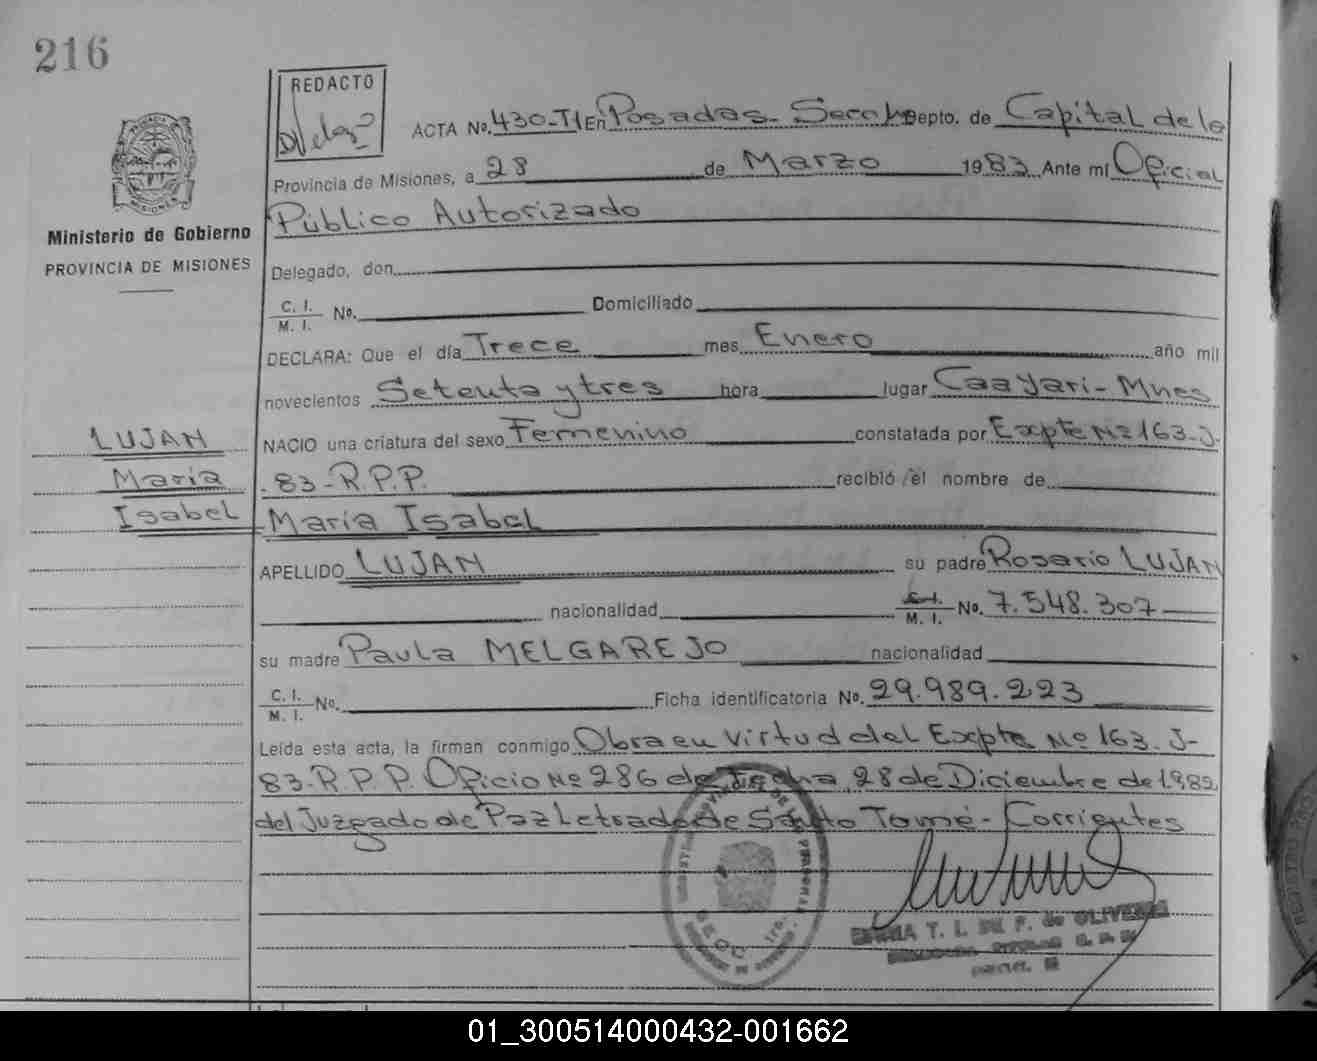 216
REDACTO
ACTA No. 430-T1 En Posadas- Secc 1ª Depto. de Capital de la
Provincia de Misiones, a 28 de Marzo 1983 Ante mí Oficial
Público Autorizado
Ministerio de Gobierno
PROVINCIA DE MISIONES
Delegado, don
C. I. M. I. No. Domiciliado
DECLARA: Que el día Trece mes Enero año mil
novecientos Setenta y tres hora lugar Caa Yarí- Mnes
NACIO una criatura del sexo Femenino constatada por Expte Nº 163-J-
83-R.P.P. recibió el nombre de
LUJAN
María
Isabel
María Isabel
APELLIDO LUJAN su padre Rosario LUJAN
nacionalidad C. I. M. I. No. 7.548.307
su madre Paula MELGAREJO nacionalidad
C. I. M. I. No. Ficha identificatoria No. 29.989.223
Leída esta acta, la firman conmigo Obra en virtud del Expte Nº 163-J-
83-R.P.P. Oficio Nº 286 de Fecha 28 de Diciembre de 1982
del Juzgado de Paz Letrado de Santo Tomé- Corrientes
T. L. de OLIVEIRA
01_300514000432-001662